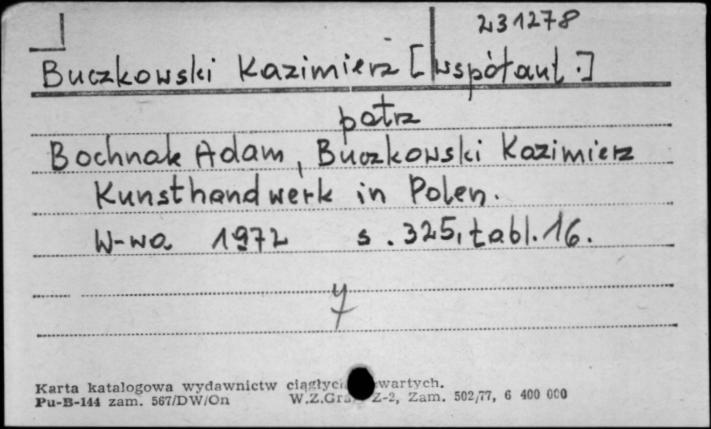 231278
Buczkowski Kazimierz [współaut.]
patrz
Bochnak Adam, Buczkowski Kazimierz
Kunsthandwerk in Polen.
W-wa 1972 s. 325, tabl. 16.
Karta katalogowa wydawnictw
Pu-B-144 zam. 567/DW/On W.Z.Graf. Z-2, Zam. 502/77, 6 400 000